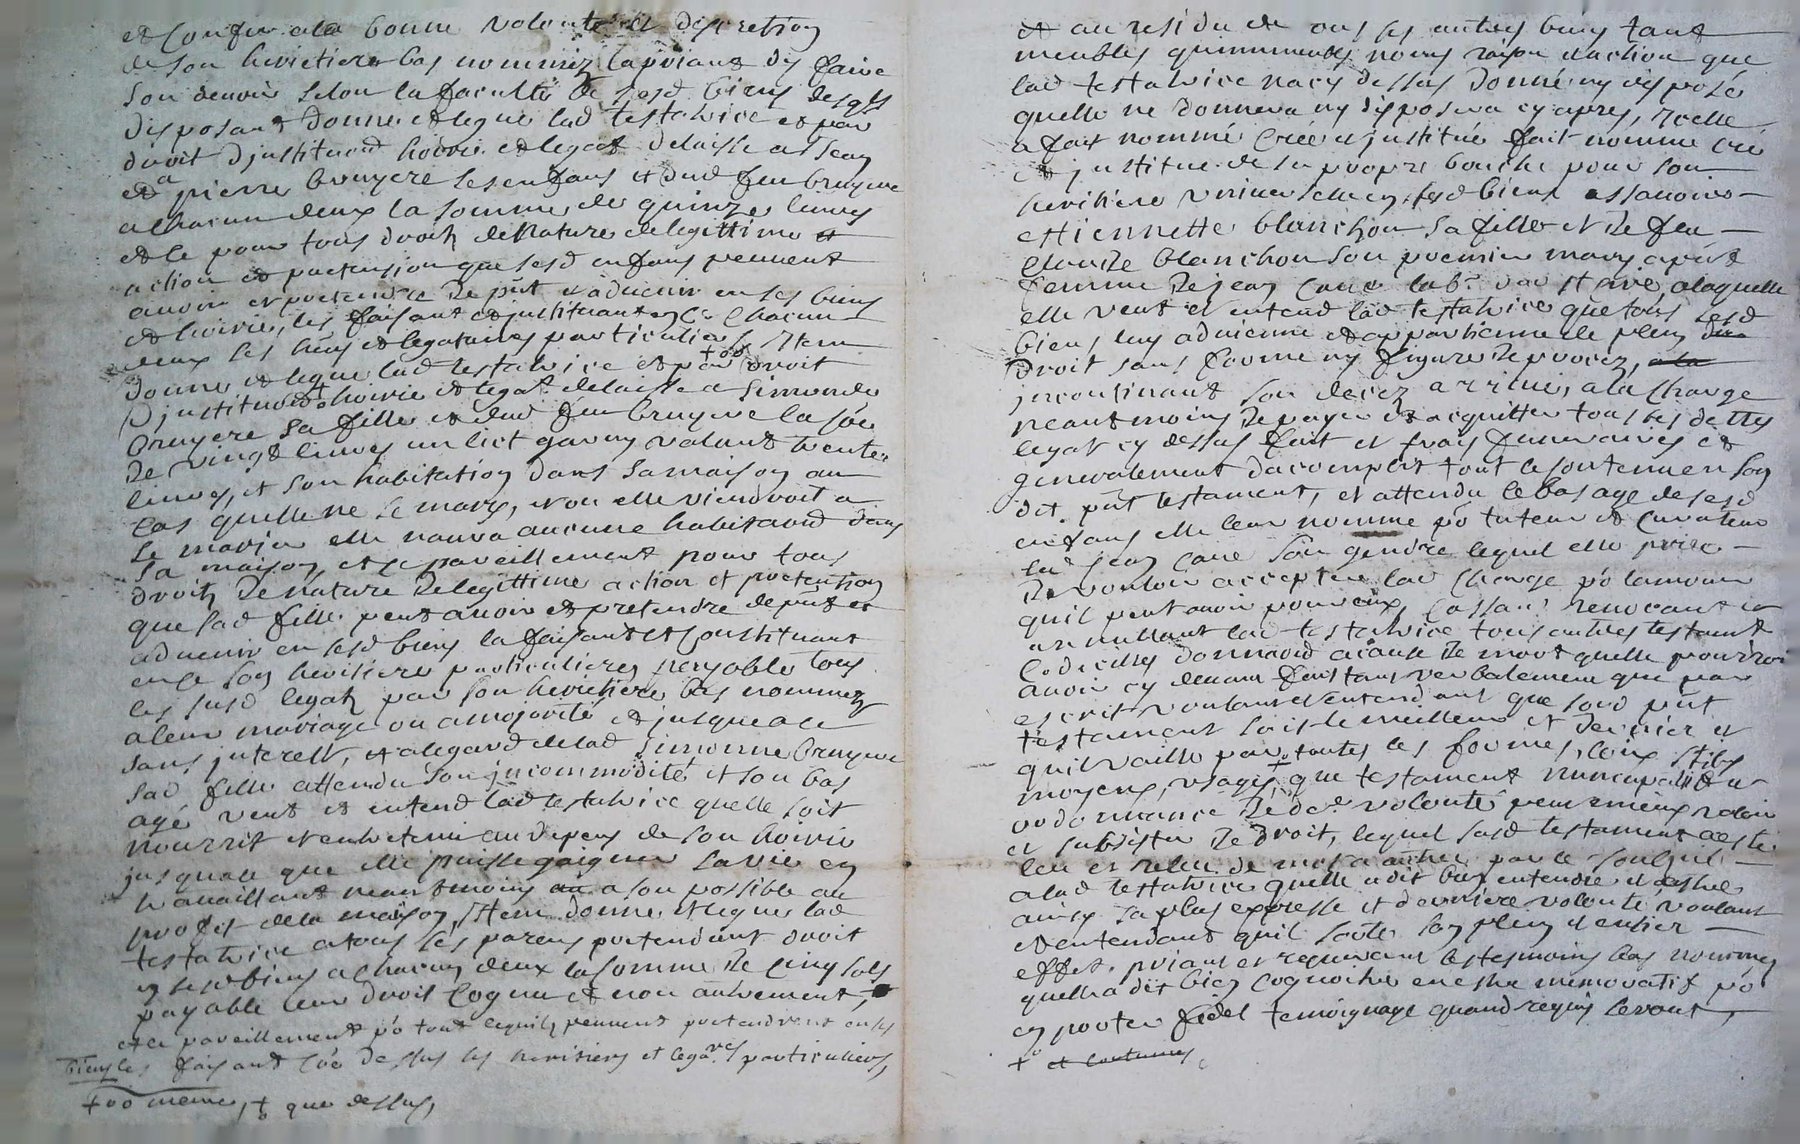 et confie a la bonne volonté et discretion
de son heritiere bas nommée la priant dy faire
son devoir selon la faculté de sesd biens desqls
disposant donne et legue lad testatrice et par
droit djnstituon hoirie et legat delaisse a Jean
et a pierre bruyere ses enfans et dud feu bruyere
a chacun deux la somme de quinze livres
et ce pour tous droits de nature de legittime et
action et pretension que sesd enfans peuvent
avoir et pretendre de pnt et advenir en ses biens
et hoirie, les faisant et jnstituant en ce chacun
deux ses hers et legataires particuliers, Item
donne et legue lad testatrice et par +oo droit
Djnstituon + hoirie et legat delaisse a Simonde
bruyere sa fille et dud feu bruyere la soe
de vingt livres un lict garny valant trente
livres, et son habitation dans sa maison au
cas quelle ne se marye, et ou elle viendroit a
se marier elle naura aucune habitaon dans
sa maison, et ce pareillement pour tous
droits de nature de legittime action et pretention
que sad fille peut avoir et pretendre de pnt et
advenir en sesd biens la faisant et constituant
en ce son heritiere particuliere, payable tous
les susd legats par son heritiere bas nommée
a leur mariage ou a majorité et jusque a ce
sans jnterest, et a legard de lad Simonne bruyere
sad fille attendu son jncommodité et son bas
age veut et entend lad testatrice quelle soit
nourrit et entretenu au depens de son hoirie
jusqua ce que elle puisse gaigner sa vie en
travaillant neantmoins a son possible au
profit de la maison, Item donne et legue lad
testatrice a tous ses parens pretendant droit
en sesd biens a chacun deux la somme de cinq sols
payable leur droit cognu et non autrement,
et ce pareillement po tout ce quils peuvent pretendre en ses
biens les faisant coe dessus ses heritiers et legares particuliers,
+oo meme, + que dessus,
et au residu de ous ses autres biens tant
meubles qu'immeubles noms raison et action que
lad testatrice na cy dessus donné ny disposé
quelle ne donnera ny disposera cy apres, Icelle
a fait nommé créé et jnstitué fait nomme cree
et jnstitue de sa propre bouche pour son
heritiere universelle en sesd biens assavoir
estiennette blanchon sa fille et de feu
Claude blanchon son premier mary a pnt
femme de jean cave labr. dud st priè a laquelle
elle veut et entend lad testatrice que tous sesd
biens luy advienne et appartienne de plein
droit sans forme ny figure de procez, a la
jncontinant son decez arrivé, a la charge
neantmoins de payer et acquitter tous ses dettes
legat cy dessus fait et frais funeraires et
generalement dacomplir tout le contenu en son
dit pnt testament, et attendu le bas age de sesd
enfans elle leur nomme po tuteur et curateur
led jean cave son gendre lequel elle prie
de vouloir accepter lad charge po lamour
quil peut avoir pour eux, cassant revocant et
annullant lad testatrice tous autres testamt
codicilles donnaon a cause de mort quelle pourroit
avoir cy devant fait tant verbalement que par
escrit voulant et entendant que sond pnt
testament soit le meilleur et dernier et
quil vaille par toutes les formes, loix stiles
moyens, usages, + que testament nuncupatif et
ordonnance de der. volonté peut mieux valoir
et subsister de droit, lequel susd testament a esté
leu et releu de mot a autre par le soubsné
a lad testatrice quelle a dit bien entendre et estre
ainsy sa plus expresse et derniere volonté voulant
et entendant quil sorte son plein et entier
effet, priant et requerant les tesmoins bas nommes
quelle a dit bien cognoitre en estre memoratif po
en porter fidel temoignage quand requis seront,
+ et coutumes,